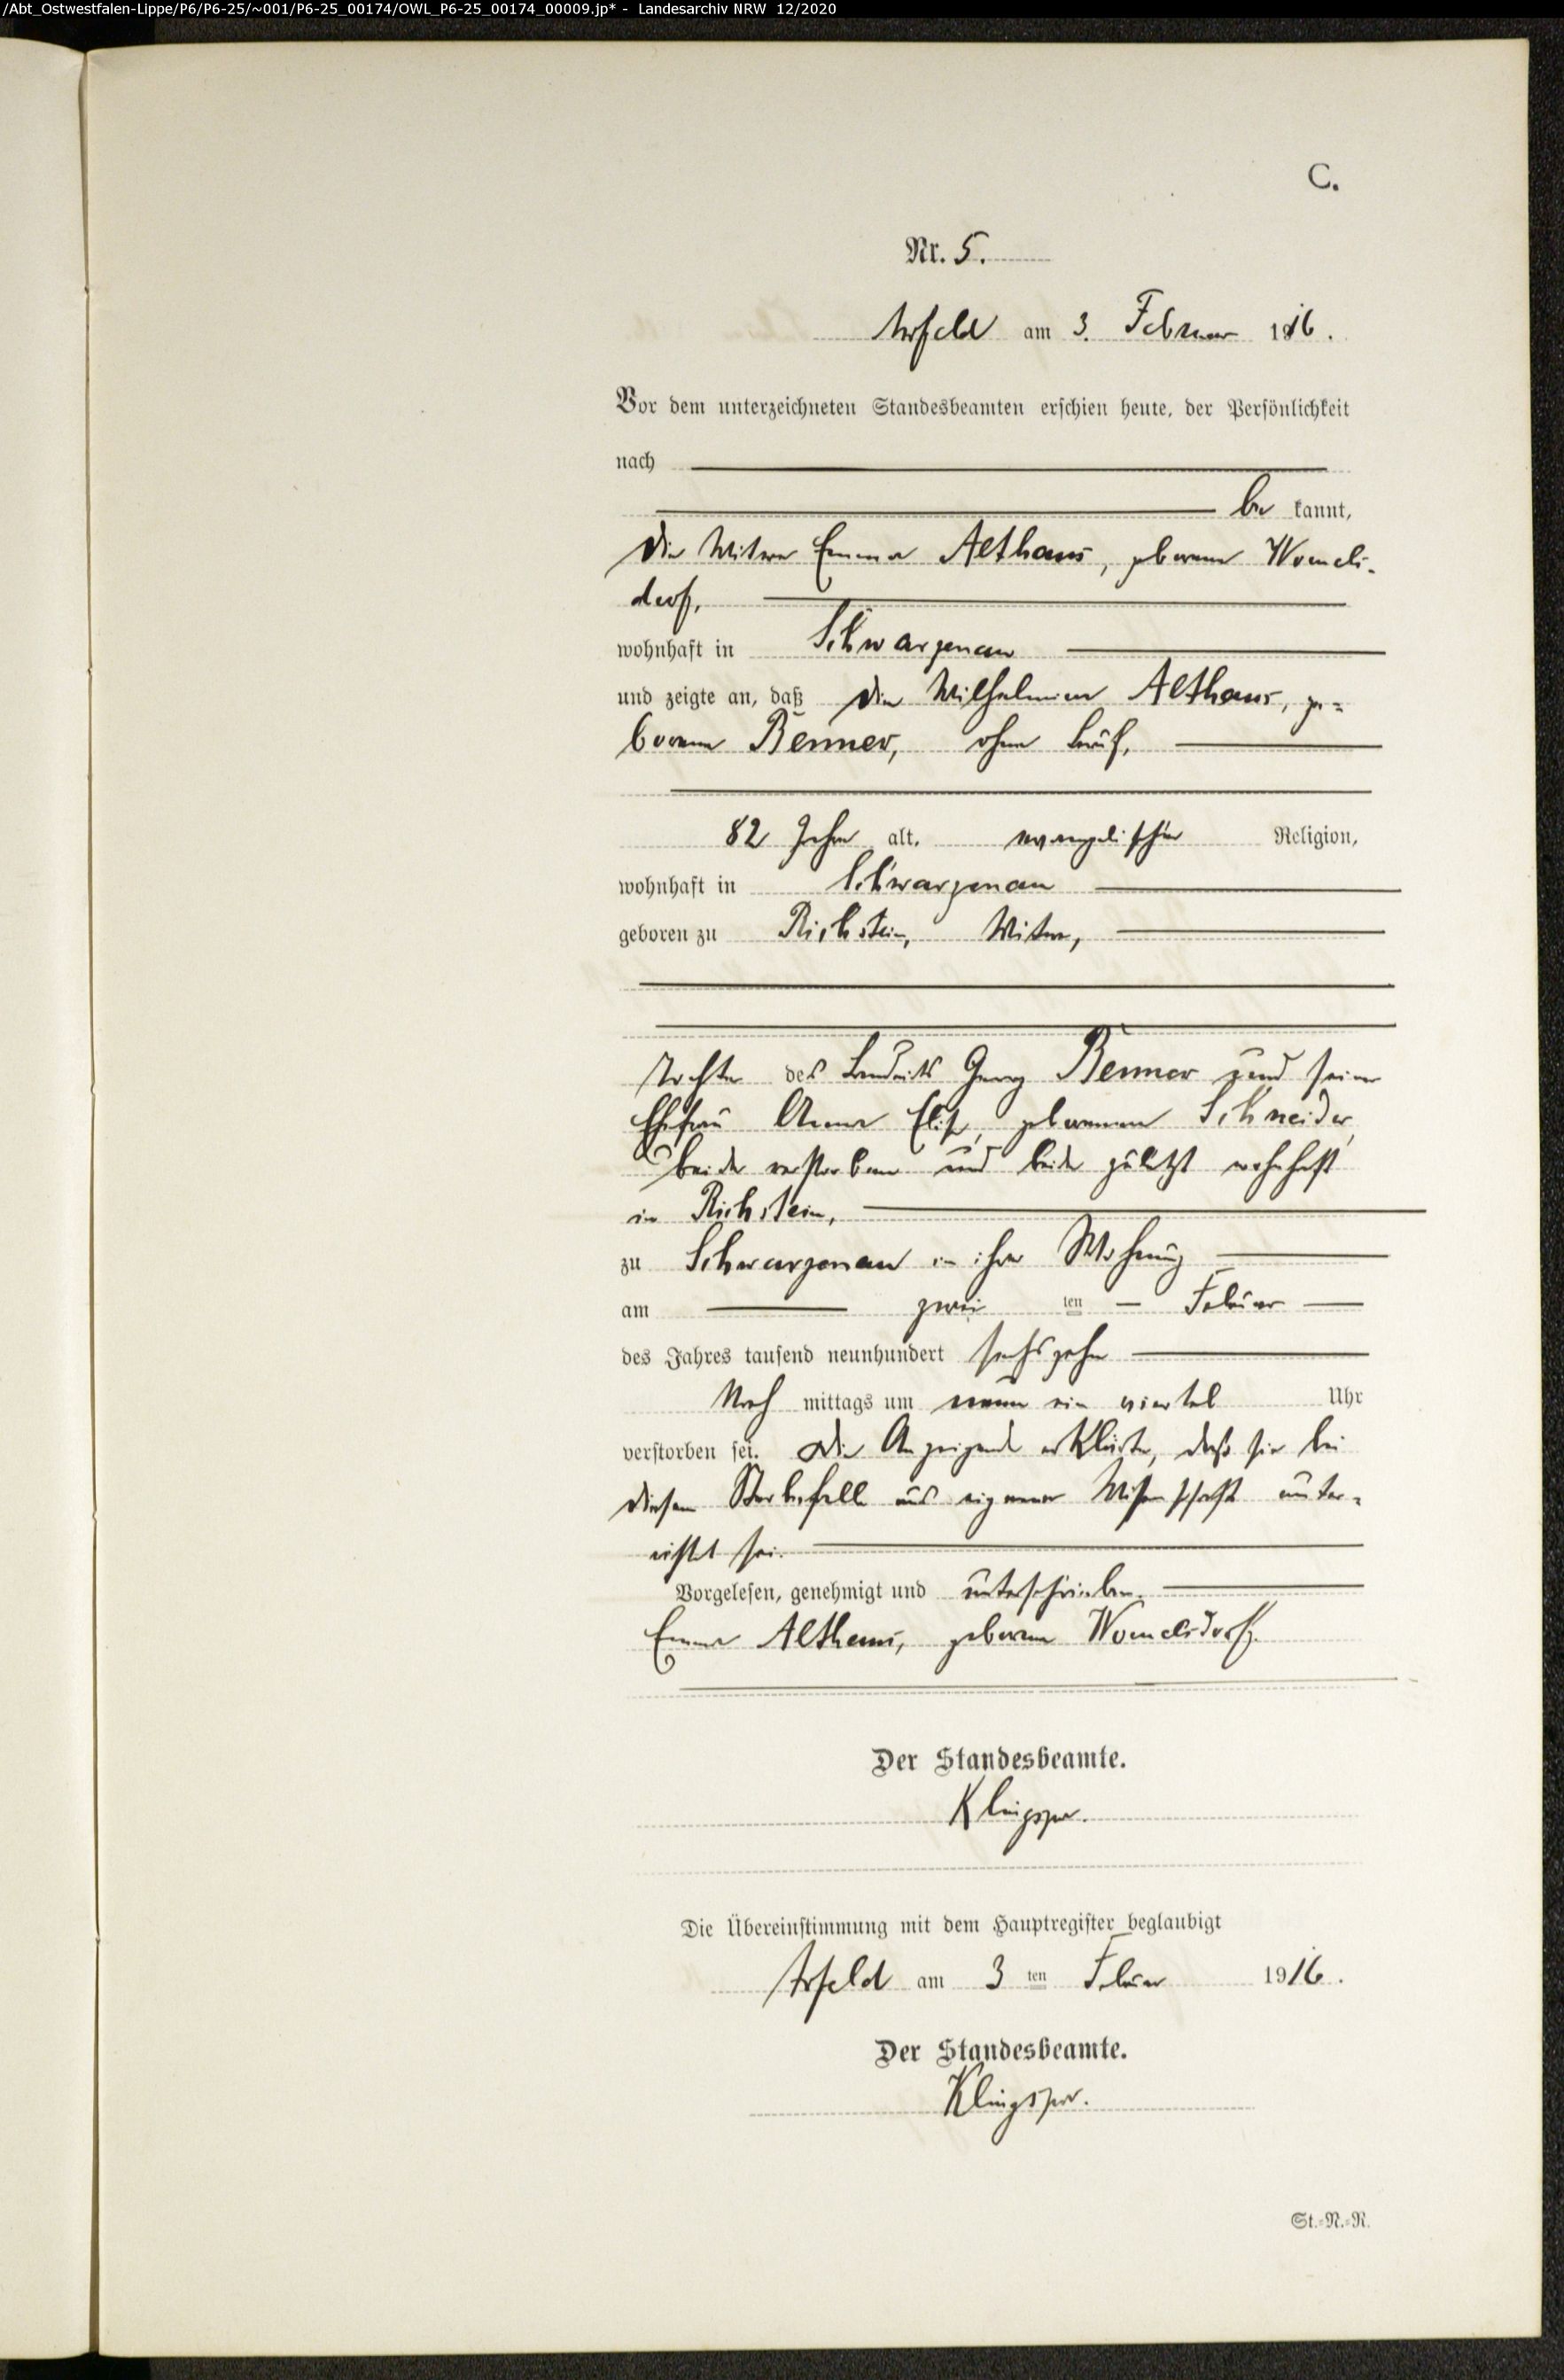 /Abt_Ostwestfalen-Lippe/P6/P6-25/~001/P6-25_00174/OWL_P6-25_00174_00009.jp* - Landesarchiv NRW 12/2020
C.
Nr. 5.
Arfeld am 3. Februar 1916.
Vor dem unterzeichneten Standesbeamten erschien heute, der Persönlichkeit
nach
be kannt,
die Witwe Emma Althaus, geborene Womels-
dorf,
wohnhaft in Schwarzenau
und zeigte an, daß die Wilhelmine Althaus, ge-
borene Benner, ohne Beruf,
82 Jahre alt, evangelischer Religion,
wohnhaft in Schwarzenau
geboren zu Richstein, Witwe,
Tochter des Landwirts Georg Benner und seiner
Ehefrau Anna Elise, geborenen Schneider,
beide verstorben und beide zuletzt wohnhaft
in Richstein,
zu Schwarzenau in ihrer Wohnung
am zwei ten Februar
des Jahres tausend neunhundert sechszehn
Nach mittags um neun ein viertel Uhr
verstorben sei. Die Anzeigende erklärte, daß sie bei
diesem Sterbefalle aus eigener Wissenschaft unter-
richtet sei.
Vorgelesen, genehmigt und unterschrieben.
Emma Althaus, geborene Womelsdorf.
Der Standesbeamte.
Klingspor.
Die Übereinstimmung mit dem Hauptregister beglaubigt
Arfeld am 3 ten Februar 1916.
Der Standesbeamte.
Klingspor.
St.-N.-R.